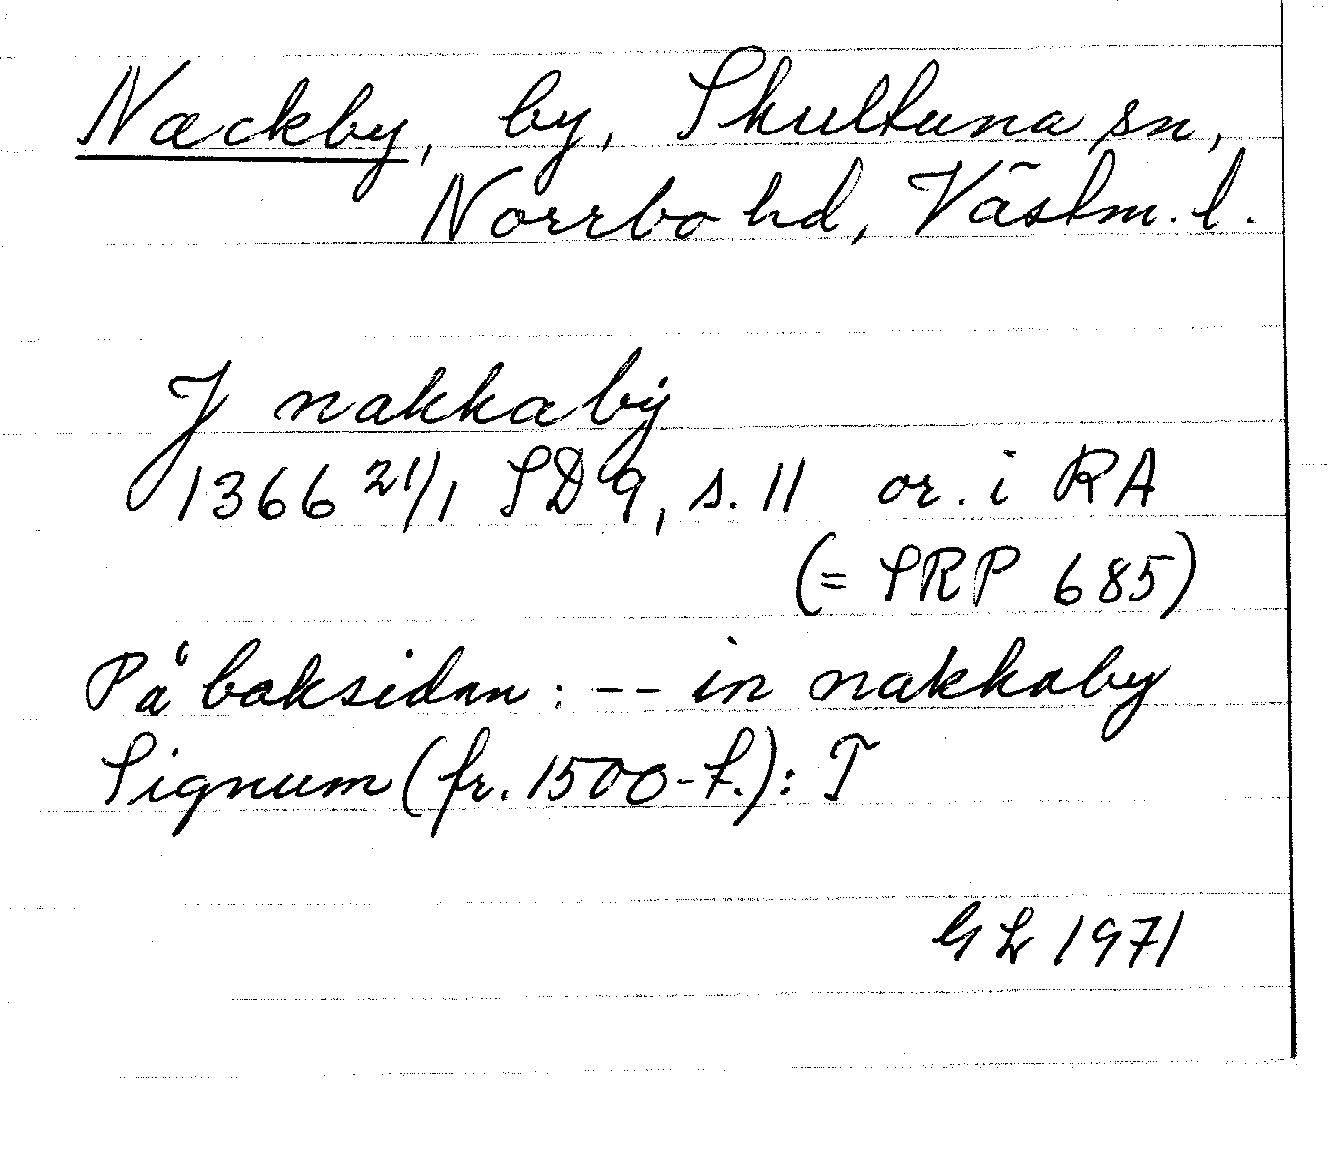 Nackby, by, Skultuna sn,
Norrbo hd, Västm. l.
J nakkabÿ
1366 21/1 SD 9, s. 11 or. i RA
(= SRP 685)
På baksidan: -- in nakkaby
Signum (fr. 1500-t.): T
GL 1971